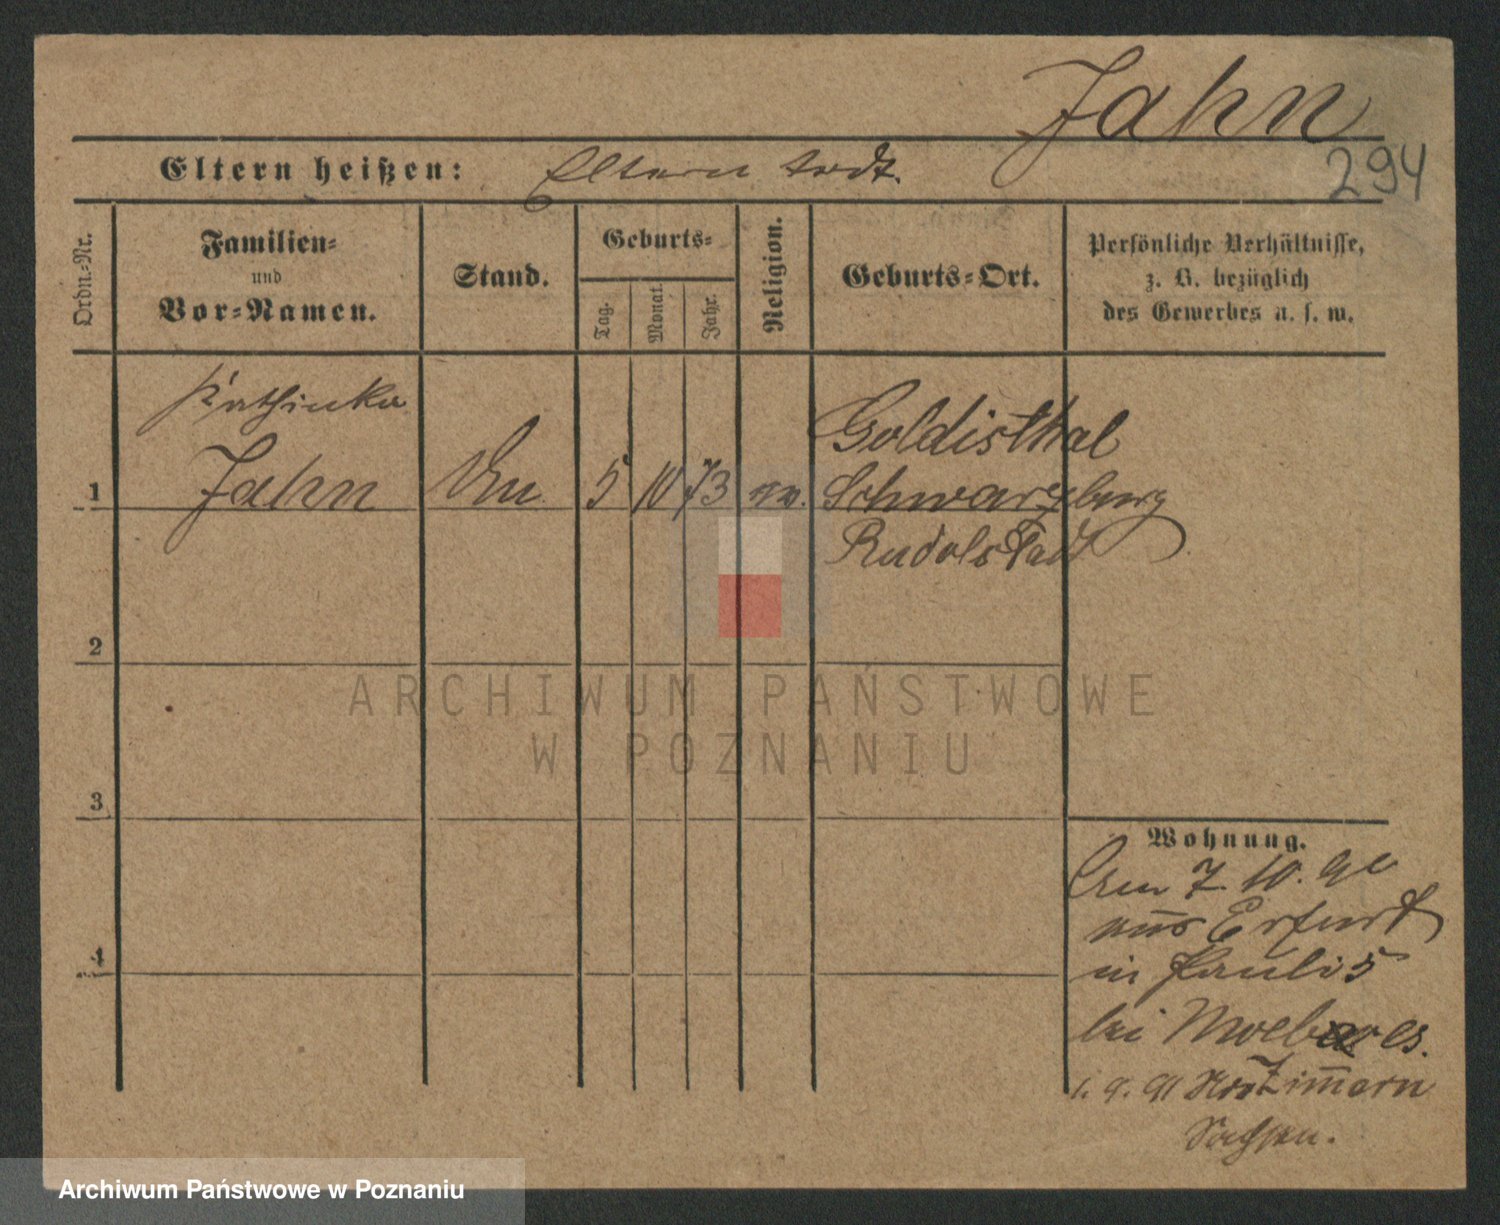 Jahn
294
Eltern heißen: Eltern todt.
Ordn.-Nr.
Familien-
und
Vor-Namen.
Stand.
Geburts-
Tag.
Monat.
Jahr.
Religion.
Geburts-Ort.
Persönliche Verhältnisse,
z. B. bezüglich
des Gewerbes u. s. w.
Kathinka
1 Jahn 5 10 73 ev.
Goldisthal
Schwarzburg
Rudolstadt
2
3
4
ARCHIWUM PAŃSTWOWE
W POZNANIU
Wohnung.
7. 10. 90
aus Erfurt
in Pauli 5
bei
1. 9. 91 Zimmern
Sachsen.
Archiwum Państwowe w Poznaniu